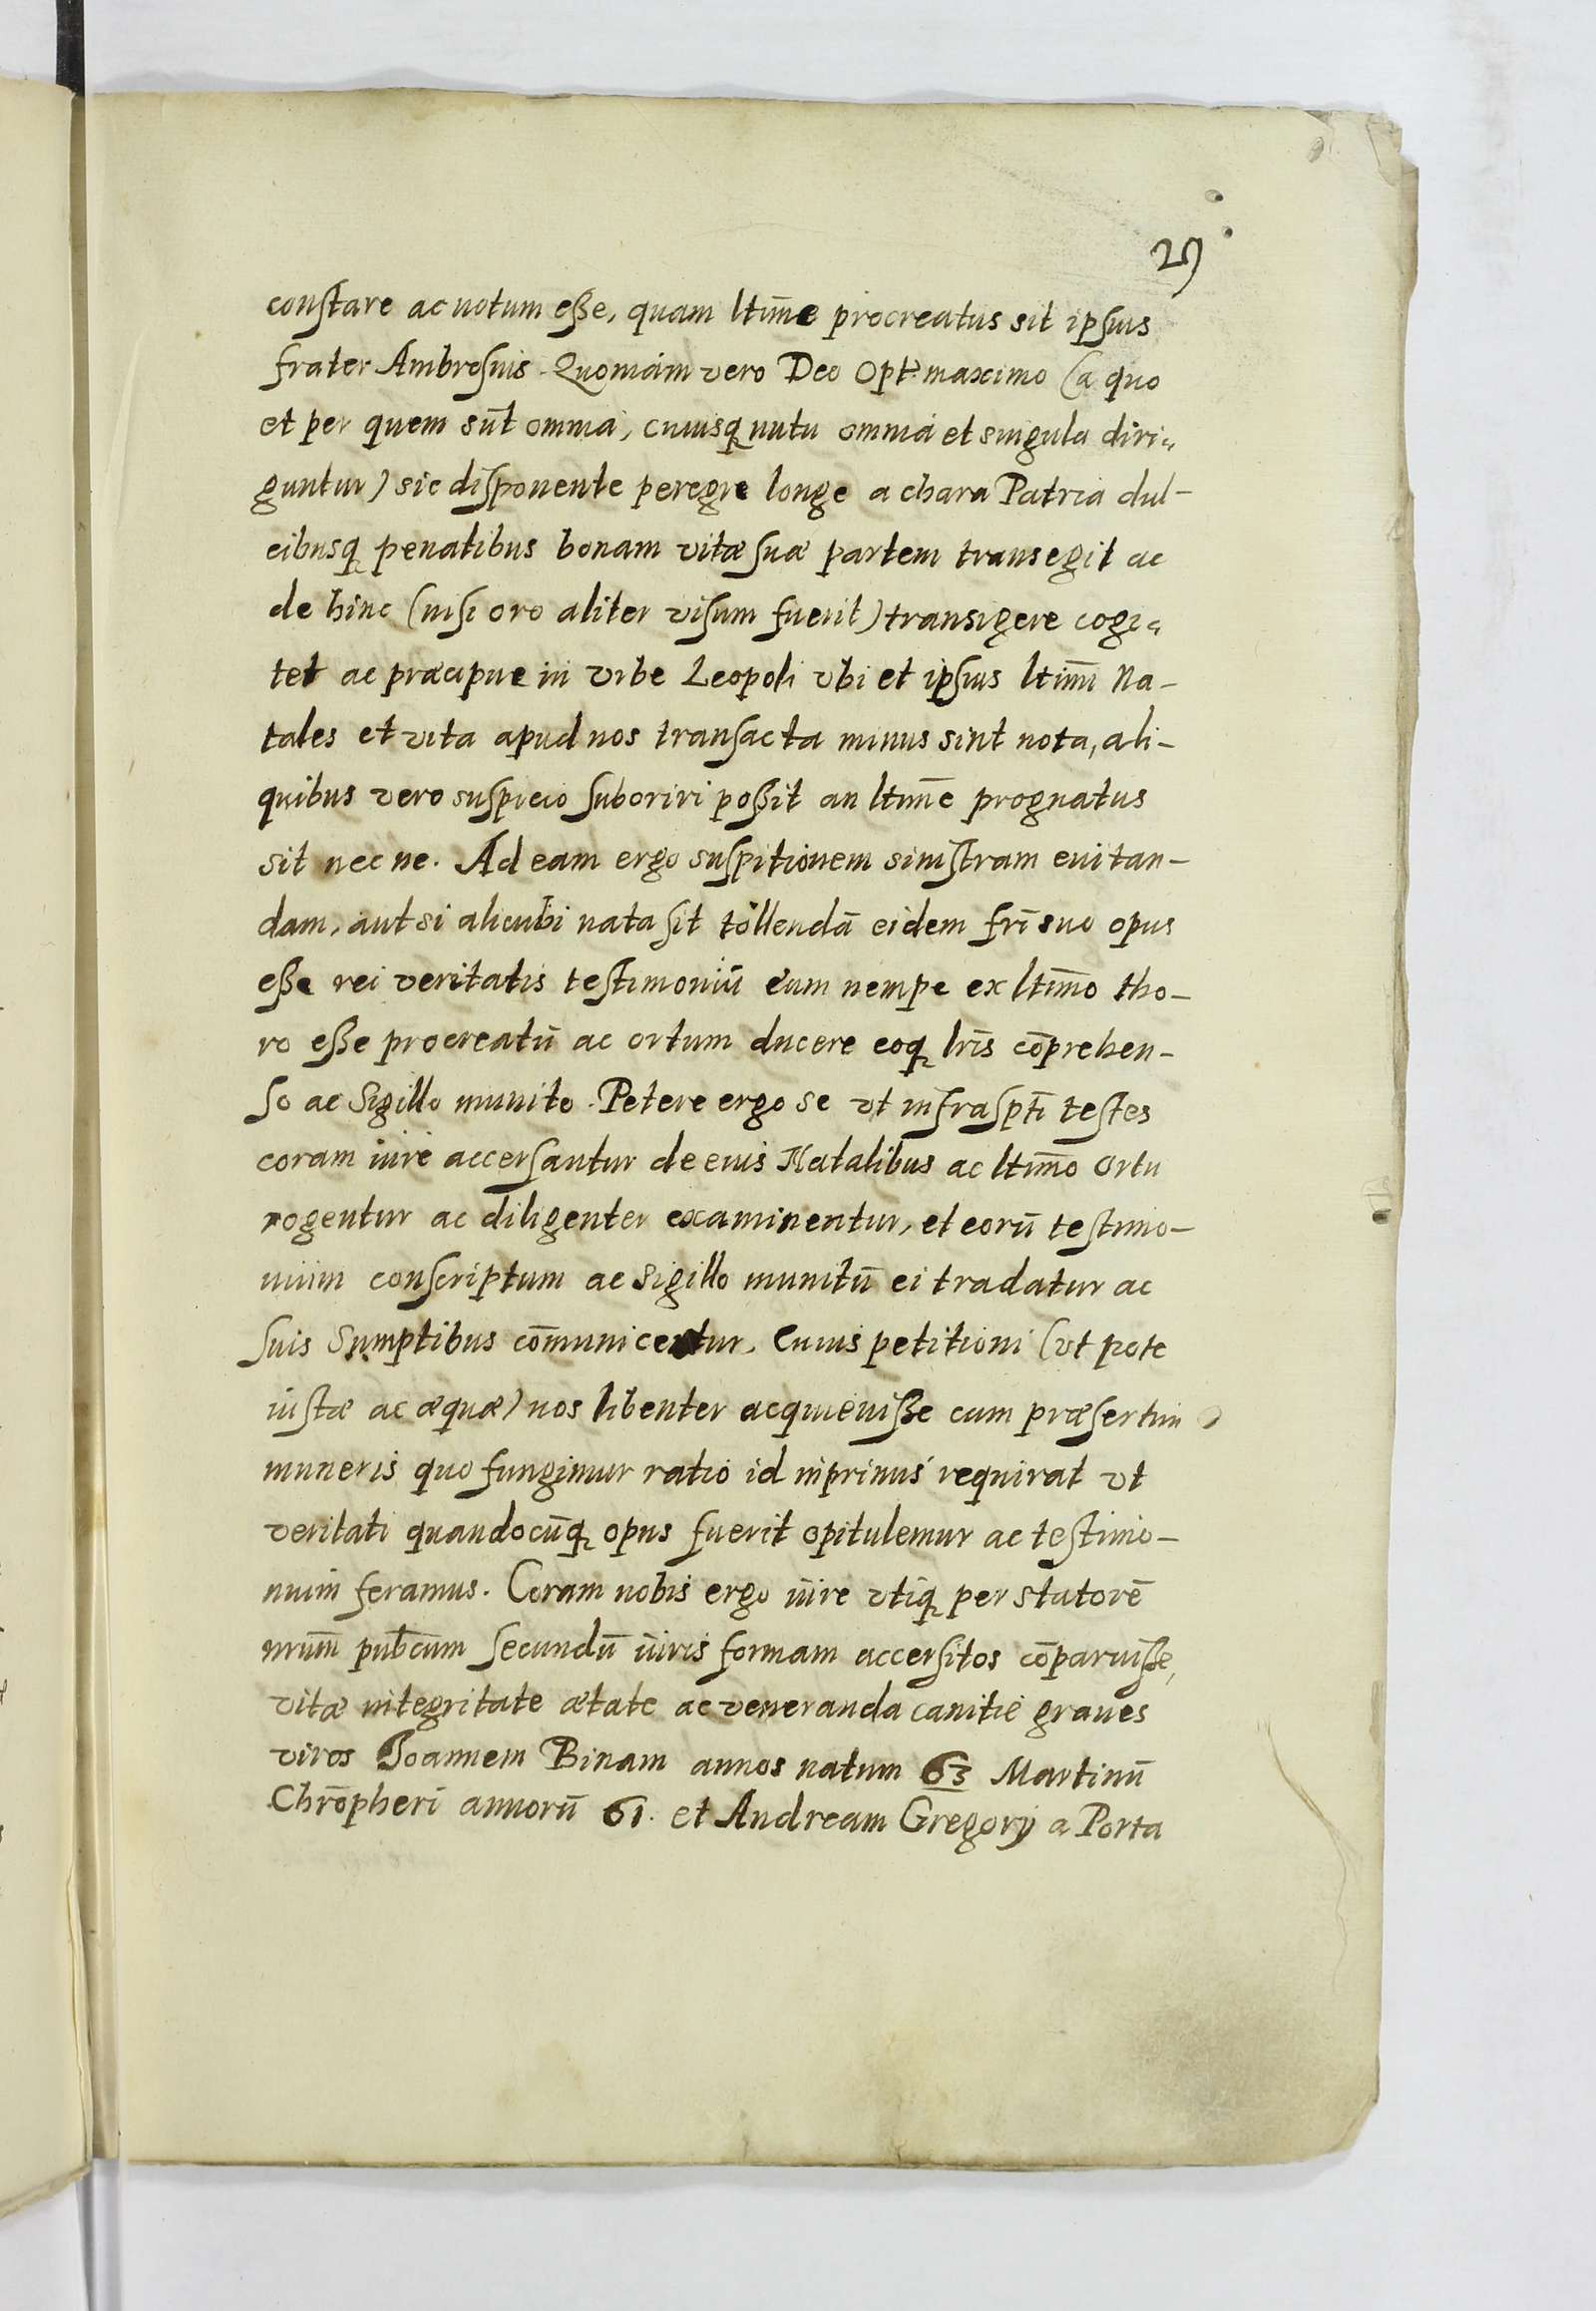 29
constare ac notum esse, quam ltim̄e procreatus sit ipsius
frater Ambrosius. Quoniam vero Deo Opt: maximo (a quo
et per quem sūt omnia, cuiusq nutu omnia et singula diri„
guntur) sic disponente peregre longe a chara Patria dul-
cibusq penatibus bonam vitæ suæ partem transegit ac
de hinc (nisi oro aliter visum fuerit) transigere cogi„
tet ac præcipue in Vrbe Leopoli vbi et ipsius ltim̄i Na-
tales et vita apud nos transacta minus sint nota, ali-
quibus vero suspicio suboriri possit an ltim̄e prognatus
sit nec ne. Ad eam ergo suspitionem sinistram euitan-
dam, aut si alicubi nata sit tollendā eidem frī suo opus
esse rei veritatis testimoniū eum nempe ex ltim̄o tho-
ro esse procreatū ac ortum ducere eoq lrīs cōprehen-
so ac Sigillo munito. Petere ergo se vt infrasptī testes
coram iure accersantur de eius Natalibus ac ltim̄o Ortu
rogentur ac diligenter examinentur, et eorū testimo-
nium conscriptum ac Sigillo munitū ei tradatur ac
suis Sumptibus cōmunicetur. Cuius petitioni (vt pote
iustæ ac æquæ) nos libenter acquieuisse cum præsertim
muneris quo fungimur ratio id inprimis requirat vt
veritati quandocūq opus fuerit opitulemur ac testimo-
nium feramus. Coram nobis ergo iure vtiq per statorē
nrum̄ pub̄cum secundū iuris formam accersitos cōparuisse,
vitæ integritate ætate ac veneranda canitie graues
viros Joannem Binam annos natum 63 Martinū
Chrōpheri annorū 61. et Andream Gregorij a Porta